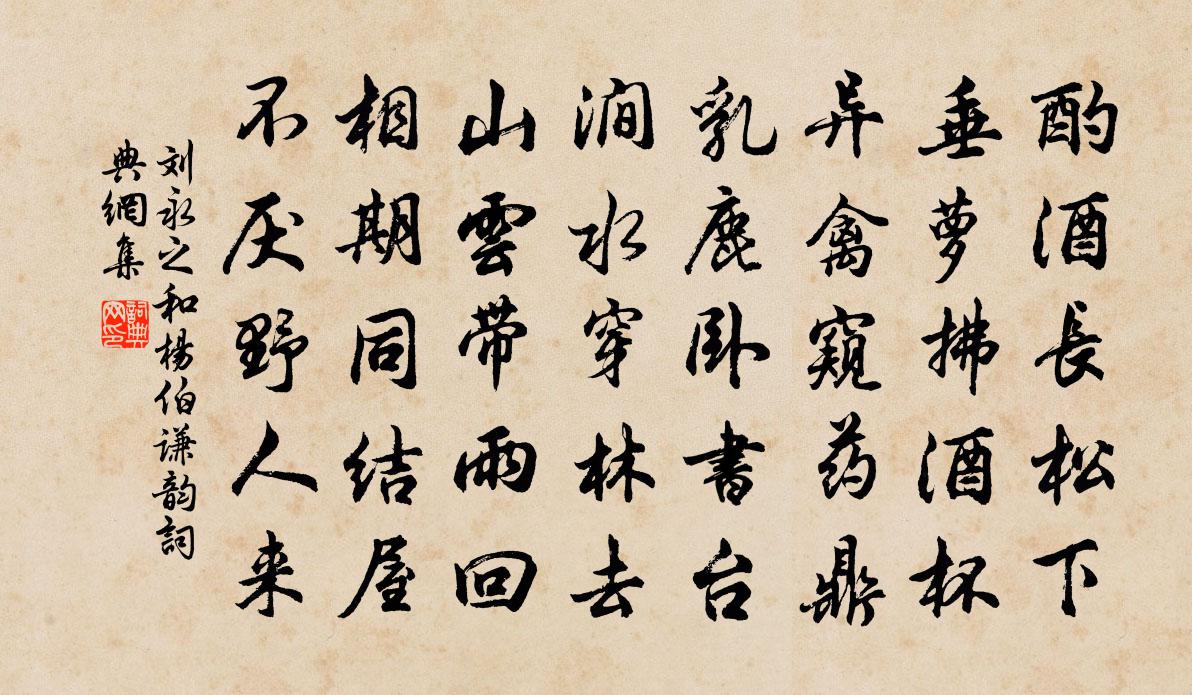 酌酒长松下
垂萝拂酒杯
异禽窥药鼎
乳鹿卧书台
涧水穿林去
山雲带雨回
相期同结屋
不厌野人来
刘永之和杨伯谦韵詞
典網集
詞典
网印